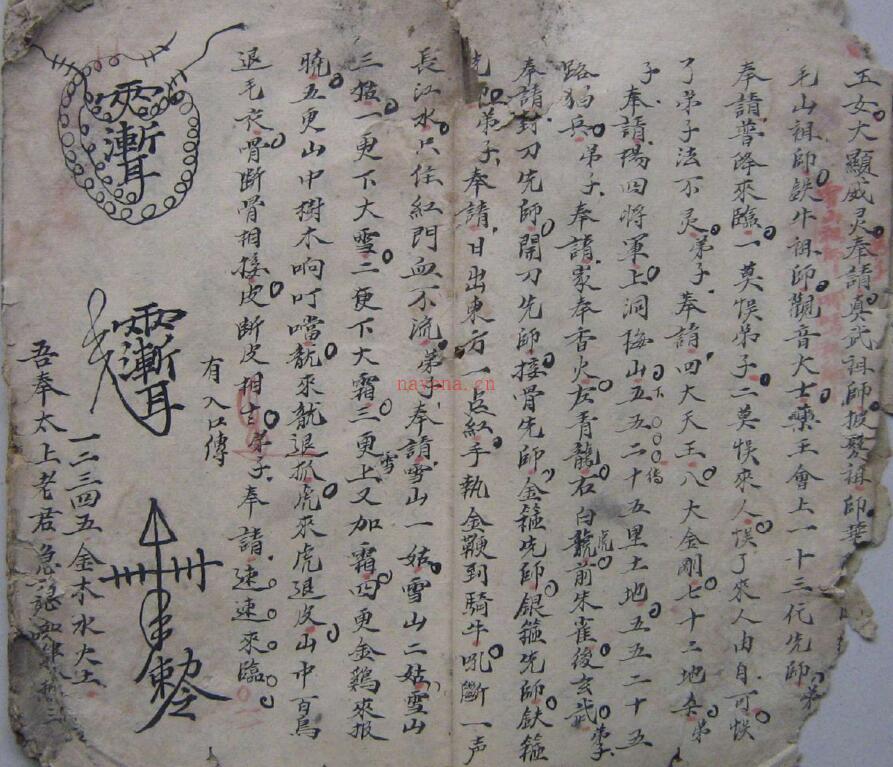 玉女大顯威灵奉請真武祖師披髪祖師華
毛山祖師鉄牛祖師觀音大士藥王會上一十三代先師弟
奉請普降來臨一莫悮弟子二莫悮來人悮了來人由自可悮
了弟子法不灵弟子奉請四大天王八大金剛七十二地杀弟
子奉請楊四將軍上洞梅山五五二十五里土地五五二十五
路猖兵弟子奉請家奉香火左青龍右白虎前朱雀後玄武弟子
奉請封刀先師開刀先師接骨先師金箍先師銀箍先師鉄箍
先師弟子奉請日出東方一点紅手執金鞭到騎牛吼断一声
長江水只住紅門血不流弟子奉請雪山一姑雪山二姑雪山
三姑一更下大雪二更下大霜三更上又加霜四更金鷄來报
曉五更山中樹木响叮噹龍來龍退爪虎來虎退皮山中百鳥
退毛衣骨斷骨相接皮斷皮相弟子奉請速速來臨
有入口傳
霹漸耳
漸耳
一二三四五金木水火土
吾奉太上老君急
敕令
nayona.cn